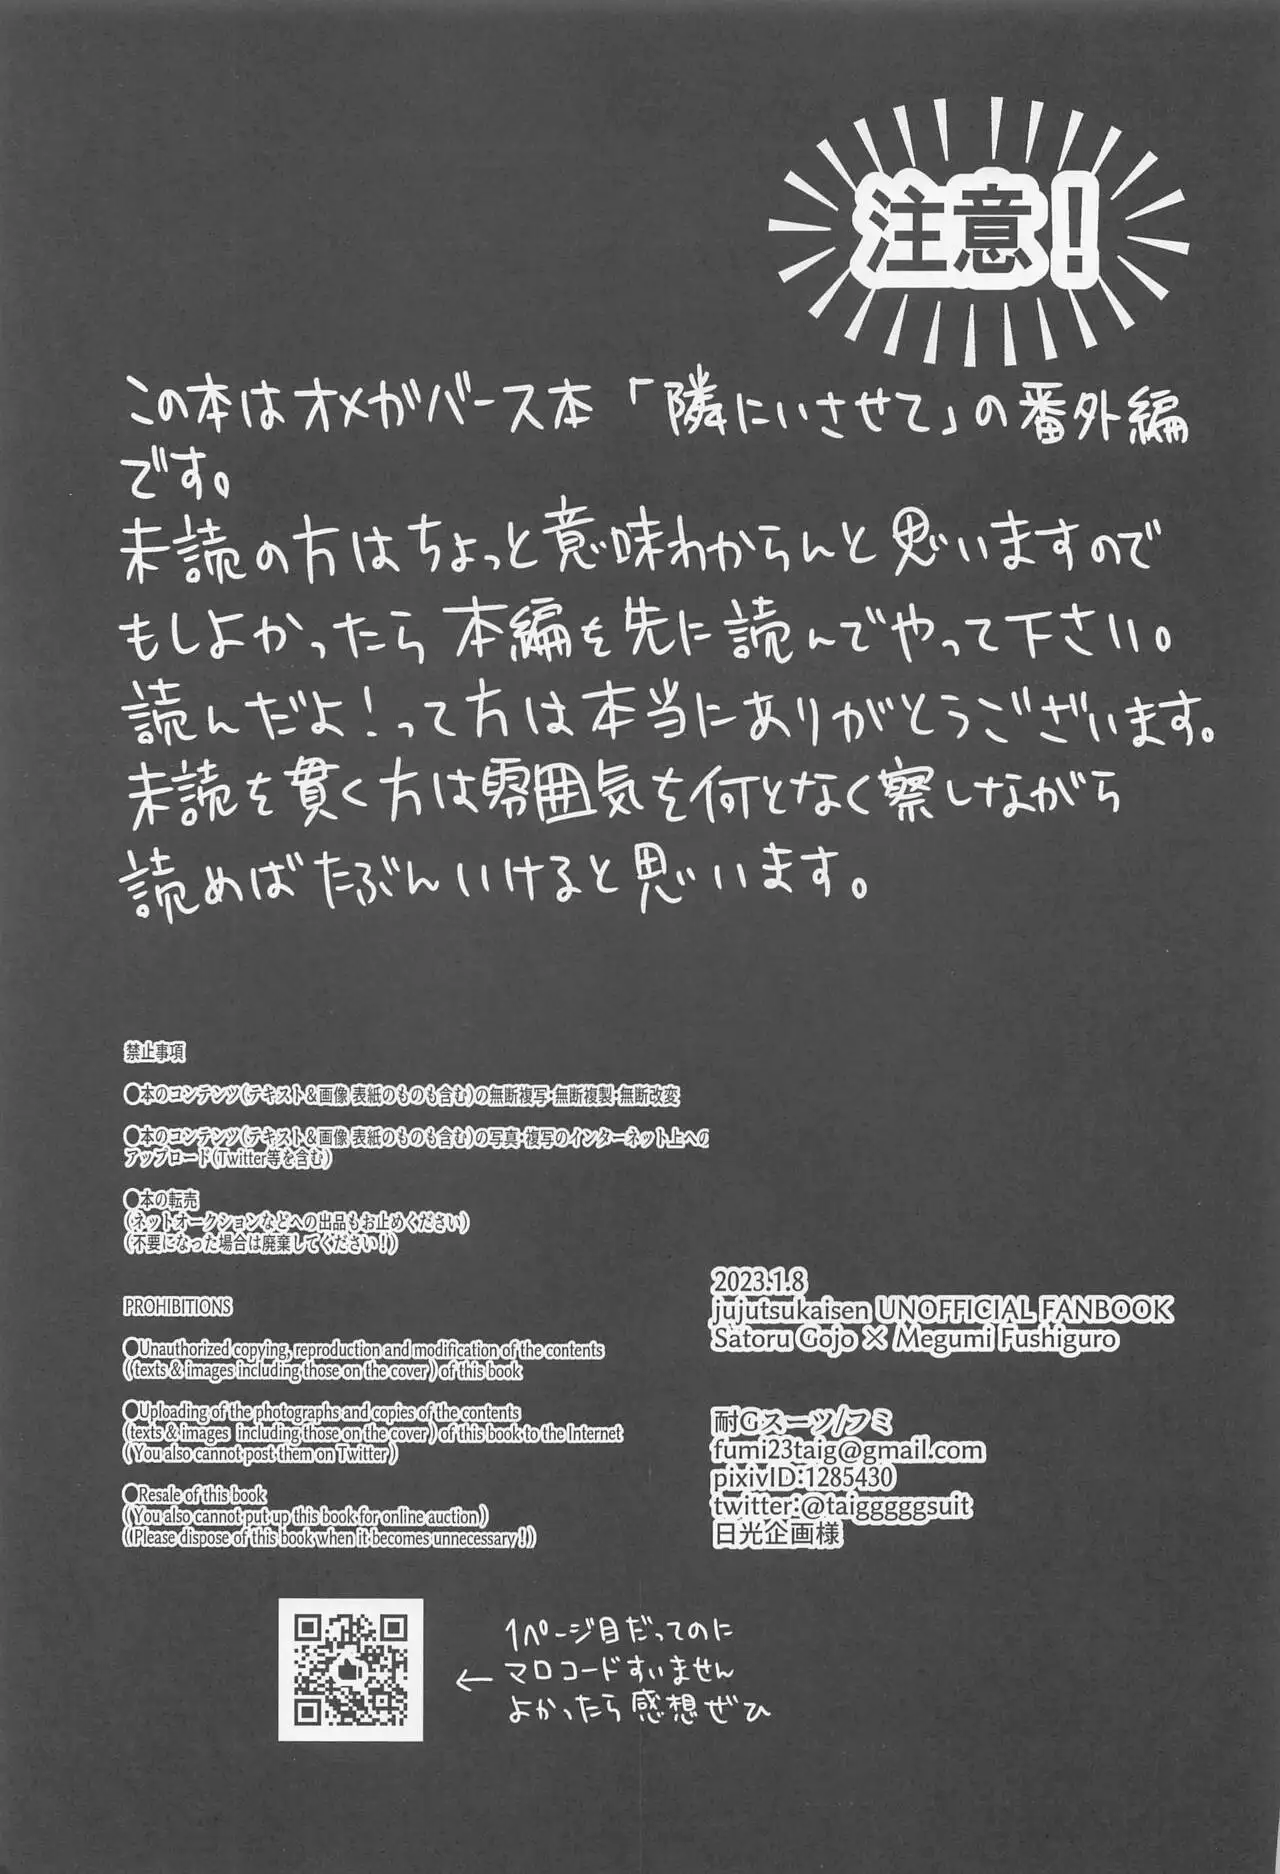 注意!
この本はオメガバース本「隣にいさせて」の番外編
です。
未読の方はちょっと意味わからんと思いますので
もしよかったら本編を先に読んでやって下さい。
読んだよ!って方は本当にありがとうございます。
未読を貫く方は雰囲気を何となく察しながら
読めばたぶんいけると思います。
禁止事項
●本のコンテンツ(テキスト&画像 表紙のものも含む)の無断複写・無断複製・無断改変
●本のコンテンツ(テキスト&画像 表紙のものも含む)の写真・複写のインターネット上への
アップロード(Twitter等を含む)
●本の転売
(ネットオークションなどへの出品もお止めください)
(不要になった場合は廃棄してください!)
PROHIBITIONS
●Unauthorized copying, reproduction and modification of the contents
(texts & images including those on the cover) of this book
●Uploading of the photographs and copies of the contents
(texts & images including those on the cover) of this book to the Internet
(You also cannot post them on Twitter)
●Resale of this book
(You also cannot put up this book for online auction)
(Please dispose of this book when it becomes unnecessary!)
2023.1.8
jujutsukaisen UNOFFICIAL FANBOOK
Satoru Gojo × Megumi Fushiguro
耐Gスーツ/フミ
fumi23taig@gmail.com
pixivID:1285430
twitter:@taigggggsuit
日光企画様
1ページ目だってのに
← マロコードすいません
よかったら感想ぜひ